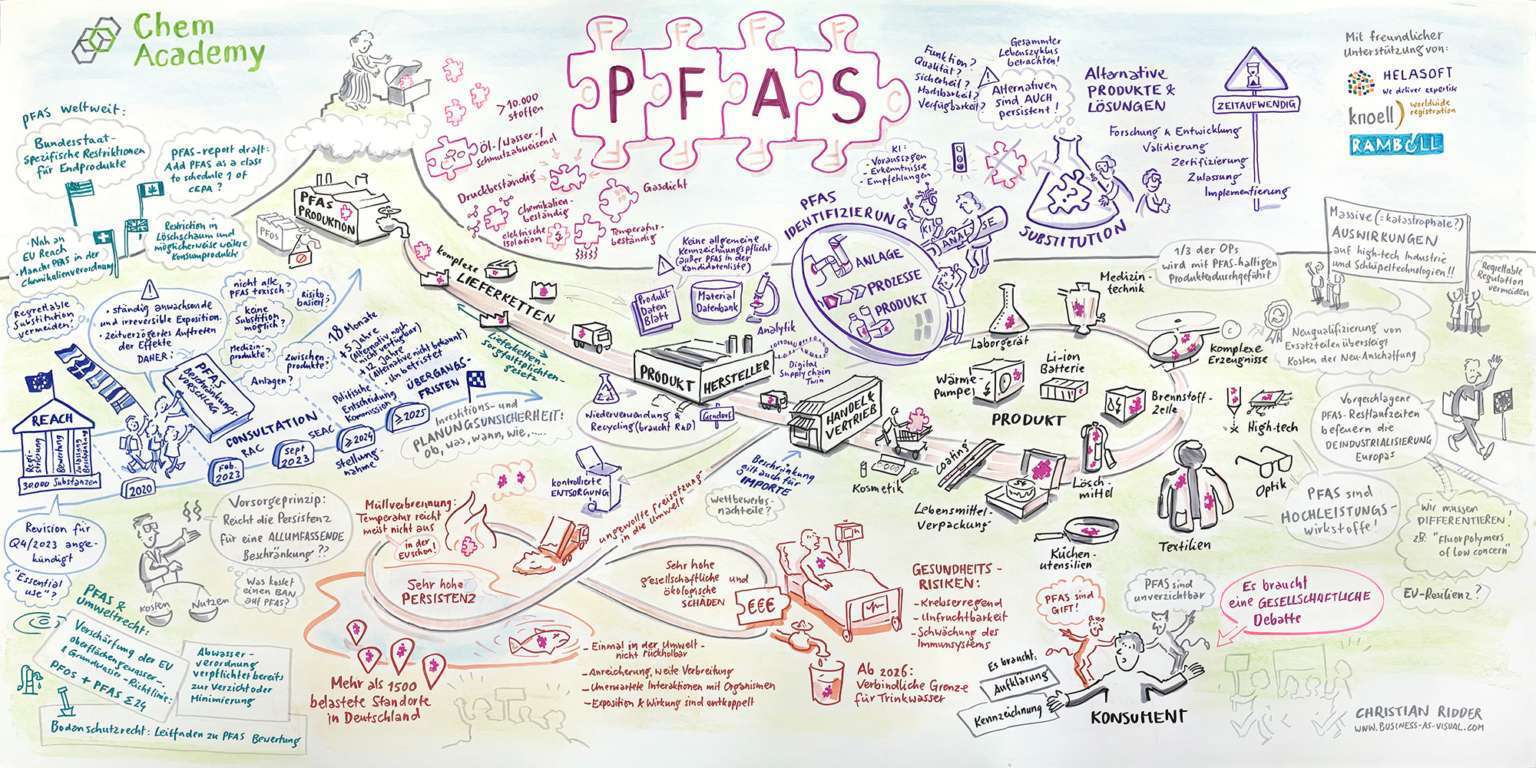 Chem
Academy
PFAS Weltweit:
Bundesstaat-
spezifische Restriktionen
für Endprodukte
PFAS-report draft:
Add PFAS as a class
to schedule 1 of
CEPA ?
Nah an
EU Reach
Manche PFAS in der
Chemikalienverordnung
Restriktion in
Löschschaum und
möglicherweise weitere
Konsumprodukte
PFOS
PFAS
PRODUKTION
> 10.000
Stoffen
Öl-/Wasser-/
Schmutzabweisend
Druckbeständig
Gasdicht
Chemikalien-
beständig
elektrische
Isolation
Temperatur-
beständig
F F F F
P F A S
C C
F F F F
Funktion?
Qualität?
Sicherheit?
Machbarkeit?
Verfügbarkeit?
Gesammter
Lebenszyklus
betrachten!
Alternativen
sind AUCH
persistent!
Alternative
PRODUKTE &
LÖSUNGEN
ZEITAUFWENDIG
Forschung & Entwicklung
Validierung
Zertifizierung
Zulassung
Implementierung
Mit freundlicher
Unterstützung von:
HELASOFT
We deliver expertise
knoell
worldwide
registration
RAMBOLL
KI:
- Voraussagen
- Erkenntnisse
- Empfehlungen
PFAS
IDENTIFIZIERUNG
KI
ANALYSE
ANLAGE
PROZESSE
PRODUKT
SUBSTITUTION
komplexe
LIEFERKETTEN
Lieferketten-
sorgfaltspflichten-
gesetz
Keine allgemeine
Kennzeichnungspflicht
(außer PFAS in der
Kandidatenliste)
Produkt
Daten
Blatt
Material
Datenbank
Analytik
Digital
Supply Chain
Twin
1/3 der OPs
wird mit PFAS-haltigen
Produkten durchgeführt
Massive (= katastrophale?)
AUSWIRKUNGEN
auf high-tech Industrie
und Schlüsseltechnologien!!
Regrettable
Regulation
vermeiden
Neuqualifizierung von
Ersatzteilen übersteigt
Kosten der Neu-Anschaffung
Regrettable
Substitution
vermeiden!
• ständig anwachsende
und irreversible Exposition.
• zeitverzögertes Auftreten
der Effekte
DAHER:
nicht alle
PFAS toxisch?
Risiko-
basiert?
keine
Substitution
möglich?
Medizin-
produkte?
Zwischen
produkte?
Anlagen?
18 Monate
+ 5 Jahre
(alternative noch
nicht verfügbar)
+ 12 Jahre
(alternative nicht bekannt)
- Unbefristet
Politische
Entscheidung
Kommission
ÜBERGANGS-
FRISTEN
PFAS
Beschränkungs-
VORSCHLAG
REACH
Regi-
strierung
Bewertung
Zulassung
Beschränkung
30.000 Substanzen
CONSULTATION
RAC
SEAC
Stellung-
nahme
2020
Feb.
2023
Sept
2023
≥ 2024
≥ 2025
Investitions- und
PLANUNGSUNSICHERHEIT:
ob, was, wann, wie,....
Revision für
Q4/2023 ange-
kündigt
"Essential
use"?
Vorsorgeprinzip:
Reicht die Persistenz
für eine ALLUMFASSENDE
Beschränkung ??
Was kostet
einen BAN
auf PFAS?
Kosten
Nutzen
PRODUKT HERSTELLER
Wiederverwendung &
Recycling (braucht R&D)
Gendorf
HANDEL &
VERTRIEB
Beschränkung
gilt auch für
IMPORTE
Wettbewerbs-
nachteile?
kontrollierte
ENTSORGUNG
ungewollte Freisetzung
in die Umwelt
PRODUKT
Laborgerät
Medizin-
technik
Komplexe
Erzeugnisse
Wärme-
Pumpe
Li-ion
Batterie
Brennstoff-
Zelle
High-tech
Optik
Kosmetik
Coating
Lebensmittel-
Verpackung
Lösch-
mittel
Küchen-
utensilien
Textilien
Vorgeschlagene
PFAS-Restlaufzeiten
befeuern die
DEINDUSTRIALISIERUNG
Europas
PFAS sind
HOCHLEISTUNGS-
wirkstoffe!
Wir müssen
DIFFERENZIEREN!
zB. "Fluorpolymers
of low concern"
EU-Resilienz?
Müllverbrennung:
Temperatur reicht
meist nicht aus
in der
EU schon!
Sehr hohe
PERSISTENZ
Mehr als 1500
belastete Standorte
in Deutschland
Sehr hohe
gesellschaftliche und
ökologische
SCHÄDEN
€€€
- Einmal in der Umwelt -
nicht rückholbar
- Anreicherung, weite Verbreitung
- Unerwartete Interaktionen mit Organismen
- Exposition & Wirkung sind entkoppelt
GESUNDHEITS-
RISIKEN:
- Krebserregend
- Unfruchtbarkeit
- Schwächung des
Immunsystems
Ab 2026:
Verbindliche Grenze
für Trinkwasser
PFAS &
Umweltrecht:
Verschärfung der EU
Oberflächengewässer-
& Grundwasser-Richtlinie:
PFOS + PFAS Σ24
Abwasser-
verordnung
verpflichtet bereits
zur Verzicht oder
Minimierung
Bodenschutzrecht: Leitfaden zu PFAS Bewertung
PFAS sind
GIFT!
PFAS sind
unverzichtbar
Es braucht
eine GESELLSCHAFTLICHE
Debatte
Es braucht:
Aufklärung
Kennzeichnung
KONSUMENT
CHRISTIAN RIDDER
WWW.BUSINESS-AS-VISUAL.COM